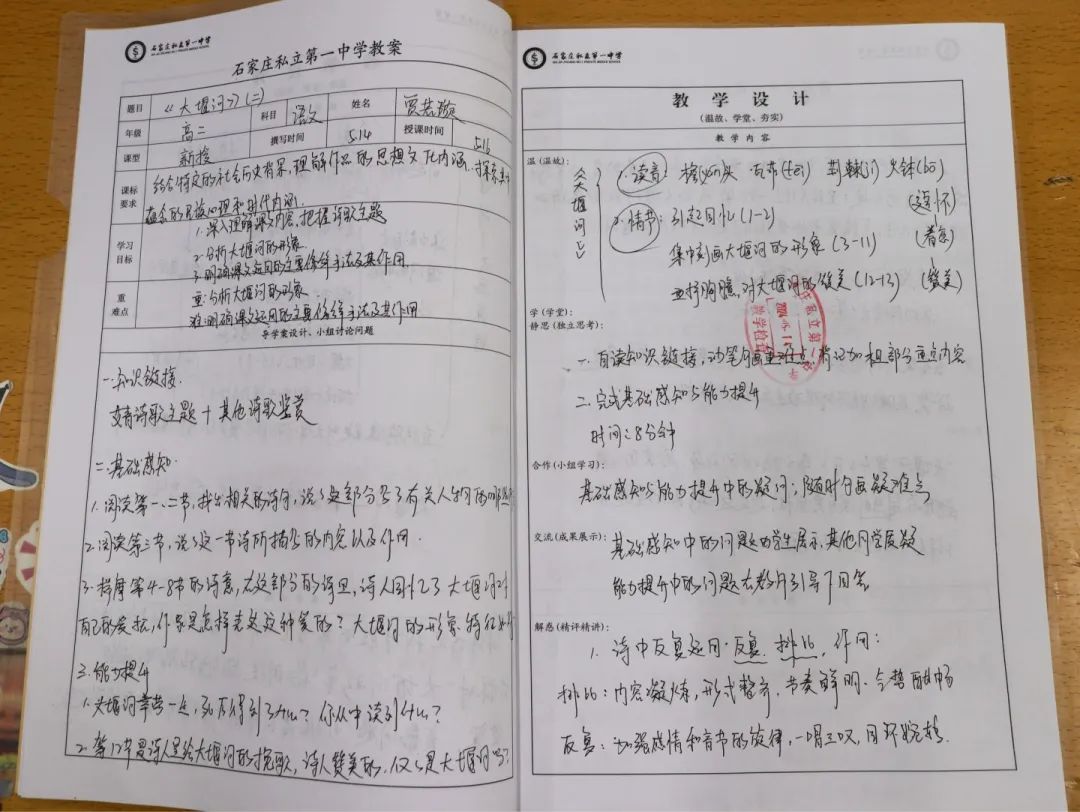 石家庄私立第一中学
石家庄私立第一中学教案
题目 《大堰河》(二) 科目 语文 姓名
年级 高二 撰写时间 5.14 授课时间 5.16
课型 新授
课标要求 结合特定的社会历史背景，理解作品的思想文化内涵，探索
蕴含的民族心理和时代内涵.
学习目标 1.深入理解课文内容，把握诗歌主题
2.分析大堰河的形象
3.明确课文运用的主要修辞手法及其作用.
重难点 重:分析大堰河的形象
难:明确课文运用的主要修辞手法及其作用
导学案设计、小组讨论问题
一.知识链接.
艾青诗歌主题 + 其他诗歌鉴赏
二.基础感知.
1.阅读第一、二节，找出相关的诗句，说说这部分写了有关人物的哪些
2.阅读第三节，说说这一节诗所描写的内容以及作用.
3. 第4-8节的诗意，在这部分的诗里，诗人回忆了大堰河对
自己的关怀，作者是怎样表达这种爱的？大堰河的形象特征
三.能力提升
1.大堰河辛苦一生，死后得到了什么？你从中读到什么？
2.第12节是诗人呈给大堰河的挽歌，诗人赞美的，仅仅是大堰河吗？
石家庄私立第一中学
教 学 设 计
(温故、学堂、夯实)
教 学 内 容
温(温故)：
《大堰河》
1.读音: 瓦菲(fēi) 荆棘(jí) 火钵(bō)
2.情节: 引起回忆(1-2) (追怀)
集中刻画大堰河的形象(3-11)
直抒胸臆，对大堰河的赞美(12-13) (赞美)
学(学堂)：
静思(独立思考)：
一.自读知识链接，动笔勾画重难点，标记加粗部分重点内容
二.完成基础感知与能力提升
时间:8分钟
合作(小组学习)：
基础感知与能力提升中的疑问;随时勾画疑难点
交流(成果展示)：
基础感知中的问题由学生展示，其他同学质疑
能力提升中的问题在教师引导下回答
解惑(精评精讲)：
1.诗中反复运用·反复.排比.作用:
排比:内容凝炼，形式整齐，节奏鲜明.气势酣畅
反复:加强感情和音节的旋律，一唱三叹，回环婉转.